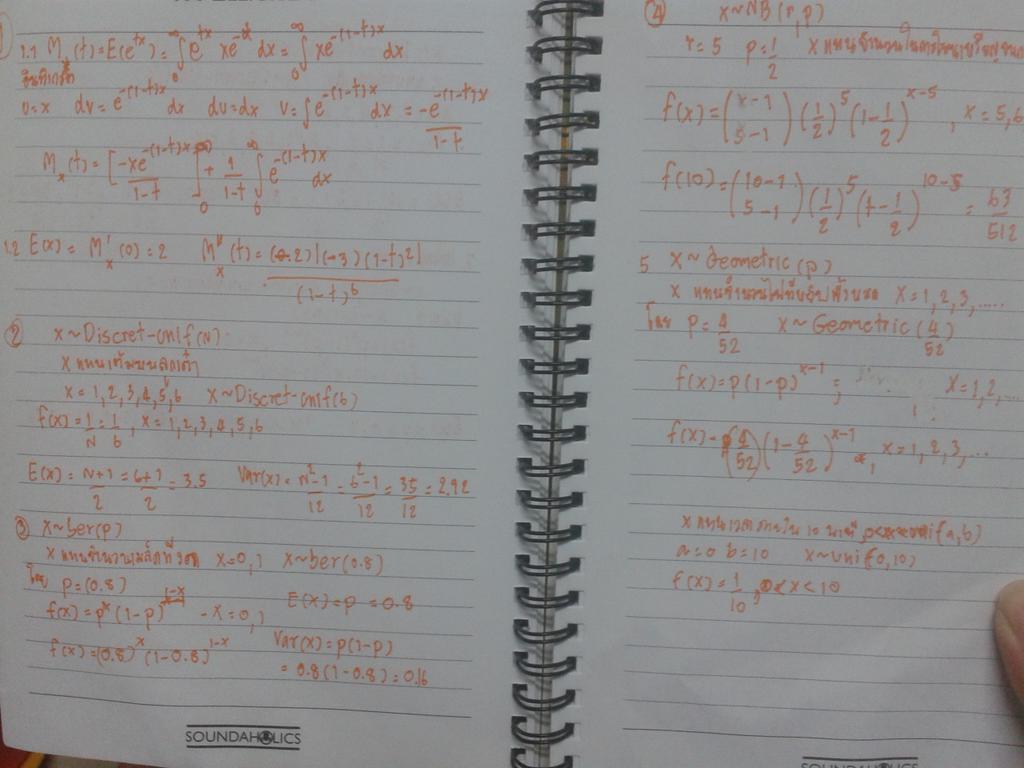 1.1 M_x(t) = E(e^{tx}) = ∫_0^∞ e^{tx} xe^{-x} dx = ∫_0^∞ xe^{-(1-t)x} dx
u=x dv=e^{-(1-t)x} dx du=dx v=∫e^{-(1-t)x} dx = -e^{-(1-t)x}/(1-t)
M_x(t) = [-xe^{-(1-t)x}/(1-t)]_0^∞ + 1/(1-t) ∫_0^∞ e^{-(1-t)x} dx
1.2 E(x) = M'_x(0) = 2 M''_x(t) = (-2)(-3)(1-t)^2/(1-t)^6
② x~Discret-unif(N)
x แทนแต้มบนลูกเต๋า
x = 1,2,3,4,5,6 x~Discret-unif(6)
f(x) = 1/N = 1/6, x = 1,2,3,4,5,6
E(x) = N+1/2 = 6+1/2 = 3.5 Var(x) = N^2-1/12 = 6^2-1/12 = 35/12 = 2.92
③ x~ber(p)
x=0,1 x~ber(0.8)
โดย p=(0.8)
f(x)=p^x(1-p)^{1-x} - x=0,1 E(x)=p=0.8
f(x)=(0.8)^x(1-0.8)^{1-x} Var(x)=p(1-p)
= 0.8(1-0.8)=0.16
SOUNDAHOLICS
④ x~NB(r,p)
r=5 p=1/2
f(x)=(x-1 5-1)(1/2)^5(1-1/2)^{x-5}, x=5,6
f(10)=(10-1 5-1)(1/2)^5(1-1/2)^{10-5} = 63/512
5 x~Geometric(p)
x = 1,2,3,.....
โดย p=4/52 x~Geometric(4/52)
f(x)=p(1-p)^{x-1}; x=1,2,...
f(x)=(4/52)(1-4/52)^{x-1}, x=1,2,3,...
x แทนเวลาภายใน 10 นาที
a=0 b=10 x~uni(0,10)
f(x)=1/10, 0<x<10
SOUNDAHOLICS